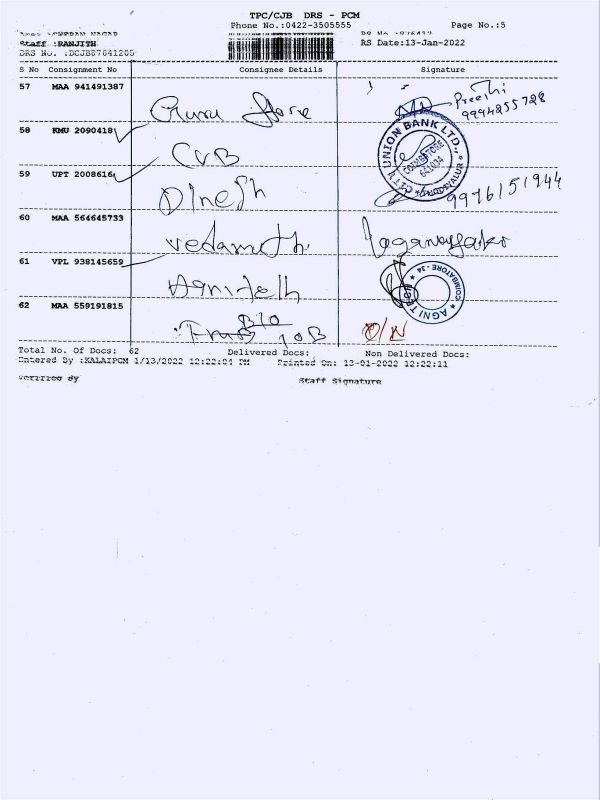 TPC/CJB DRS - PCM
Phone No.:0422-3505555 Page No.:5
Staff :RANJITH RS Date:13-Jan-2022
DRS No. :DCJB87641205
S No Consignment No Consignee Details Signature
57 MAA 941491387 Guru Store Preethi
9994255728
58 KMU 2090418 CUB CITY UNION BANK LTD., COIMBATORE 641034
59 UPT 2008616 Dinesh 9976151944
60 MAA 564645733 Vedamuth
61 VPL 938145659 Agnitech AGNI COIMBATORE - 34
62 MAA 559191815 B/O
JOB O/N
Total No. Of Docs: 62 Delivered Docs: Non Delivered Docs:
Entered By :KALAIPCM 1/13/2022 12:22:04 PM Printed On: 13-01-2022 12:22:11
Verified By Staff Signature